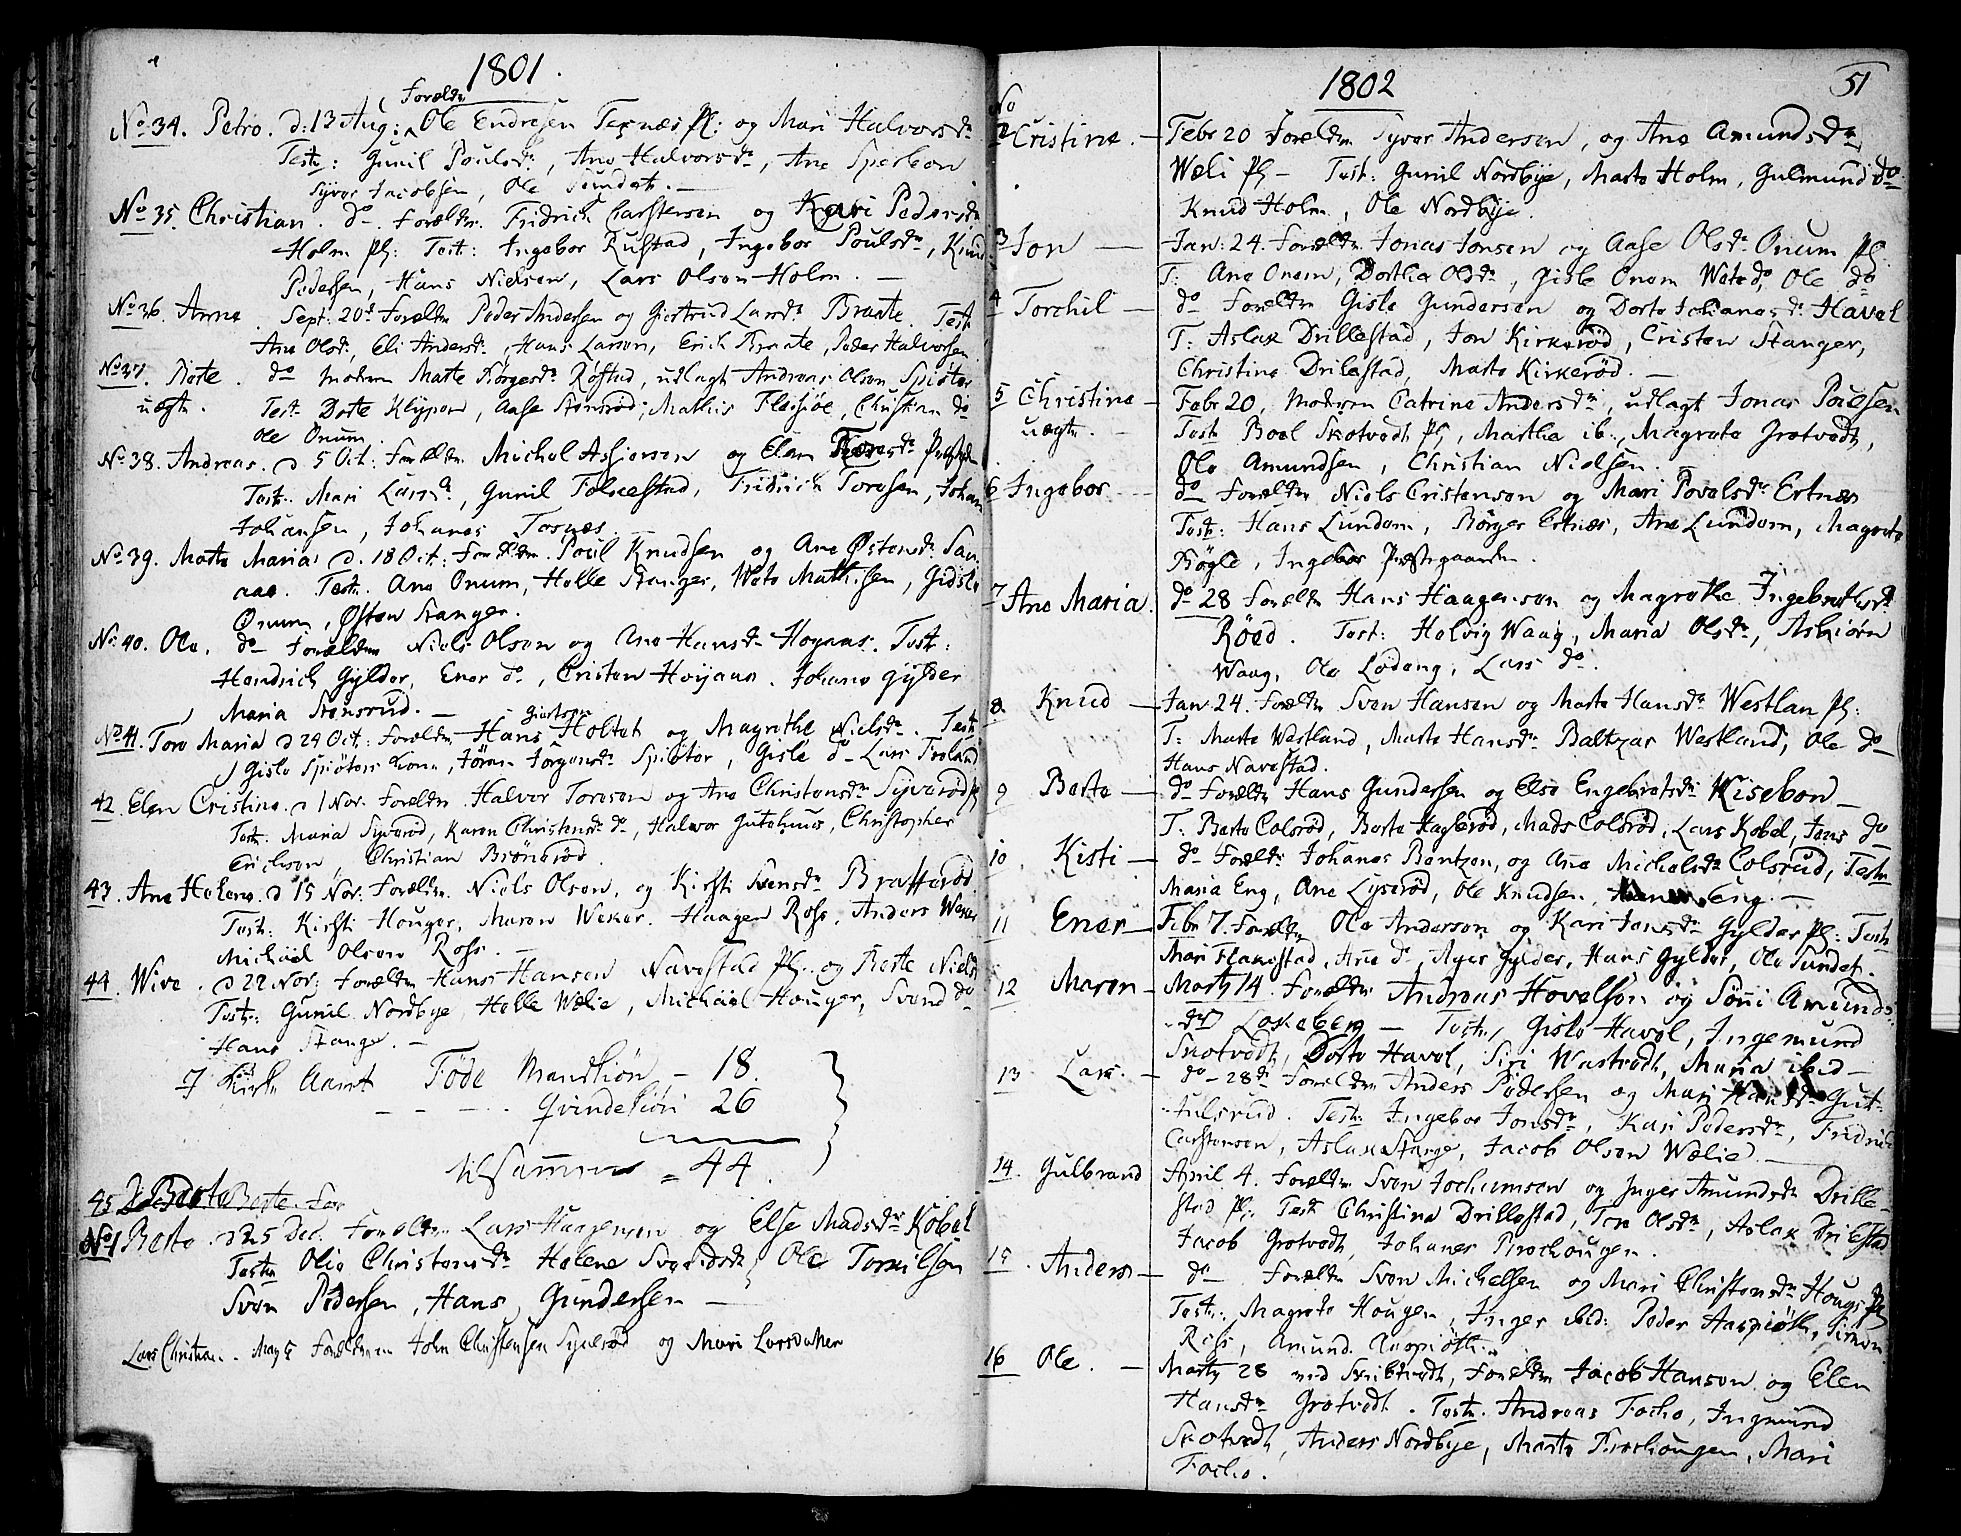 1801.
Forældre
No 34. Petro. d: 13 Aug: Ole Endresen Tesnæs Pl: og Mari Halvorsdr
Test: Gunil Poulsdr, Ane Halvorsdr, Ane Sperbon
Syver Jacobsen, Ole Sundet. —
No 35. Christian. do Forældre. Fridrich Carstensen og Kari Pedersdr
Holm Pl: Test: Ingebor Rustad, Ingebor Poulsdr, Knud
Pedersen, Hans Nielsen, Lars Olson Holm. —
No 36. Anne. Sept: 20de Forældre Peder Andersen og Giertrud Larsdr Braate. Test
Ane Olsdr, Eli Andersdr, Hans Larsen, Erich Braate, Peder Halvorsen.
No 37. Berte. do Moderen Marte Børgesdr Røstad, udlagt Andreas Olsen Spiøter
uægte. Test: Dorte Klypen, Aase Stensrød, Mathis Flessiøe, Christian do
Ole Onum.
No 38. Andreas. d 5 Oct: Forældre Michel Asbiorsen og Elen Toresdr
Test: Mari Larsdr, Gunil Folkestad, Fridrich Toresen, Johan
Johansen, Johanes Tosnæs. —
No 39. Marte Maria: d. 18 Oct: Forældre. Poul Knudsen og Ane Østensdr San-
aae. Test. Ane Onum, Helle Stanger, Wete Mathisen, Gidsle
Onum, Østen Stanger.
No. 40. Ole. do Forældre Niels Olsen og Ane Hansdr Hoyaas. Test:
Hendrich Gylder, Ener do, Cristen Hoyaas. Johane Gylder
Maria Stensrud. —
No 41. Tore Maria d 24 Oct: Forældre Hans Holtet og Magrethe Nielsdr. Test
Gisle Spiøters Kone, Jøran Jørgensdr Spiøter, Gisle do Lars Froland
42. Elen Cristine. d 1 Nov. Forældre Halvor Toresen og Ane Christensdr Syverød Pl
Test: Maria Syverød, Karen Christensdr do, Halvor Gutehuus, Christopher
Erichsen, Christian Brønerød.
43. Ane Helene. d 15 Nov. Forældre. Niels Olsen, og Kirsti Svensdr Bratterød
Test: Kirsti Houger, Maren Weker. Haagen Ross, Anders Weker
Michael Olsen Ross. —
44. Wive. d 22 Nov: Forældre Hans Hansen Navestad Pl. og Berte Nielsdr
Test: Gunil Nordbye, Helle Wælie, Michael Houger, Svend do
Hans Stange. —
I Kirke Aaret Föde Mandkiön — 18.
— — — Qvindekiön 26
tilsammen = 44.
45 Berte Berte. For
No 1 Berte. d 25 Dec. Forældre. Lars Haagensen og Else Madsdr Kobel
Test Olia Christensdr Helene Svendsdr, Ole Tormilsen
Sven Pedersen, Hans Gundersen —
Lars Christian. May 5 Forældrene John Christensen Syverød og Mari Larsdatter
1802
51
No
2 Cristine. — Febr 20 Forældre Syver Andersen, og Ane Amundsdr
Wæli Pl — Test: Gunil Nordbye, Marte Holm, Gulmund do
Knud Holm, Ole Nordbye.
3 Jon — Jan: 24. Forældre Jonas Jonsen og Aase Olsdr Onum Pl.
T: Ane Onom, Dorthe Olsdr, Gisle Onom Wete do, Ole do
4 Torchil — do Forældre Gisle Gundersen og Dorte Johanesdr Havel
T: Aslak Drillestad, Jon Kirkerød, Cristen Stanger,
Christine Drilestad, Marte Kirkerød. —
5 Christine — Febr 20, Moderen Catrine Andersdr, udlagt Jonas Poulsen
uægte. — Test Boel Skotvedt Pl, Marthe ib:, Magrete Grotvedt,
Ole Amundsen, Christian Nielsen.
6 Ingebor — do Forældre Niels Cristensen og Mari Povelsdr Ertnæs
Test: Hans Lundom, Børger Ertnæs, Ane Lundom, Magrete
Bögle, Ingebor Præstegaarden.
7 Ane Maria. do 28 Forældre Hans Haagensen og Magrethe Ingebretsdr
Röed. Test: Helvig Waag, Maria Olsdr, Asbiörn
Waag, Ole Lodeng, Lars do.
8 Knud — Jan 24. Forældre Sven Hansen og Marte Hansdr Westlan Pl:
T: Marte Westland, Marte Hansdr Baltzar Westland, Ole do —
Hans Navestad.
9 Berte — do Forældre Hans Gundersen og Else Engebretsdr Wisebon —
T: Berte Colsrød, Berte Haglerød, Mads Colsrød, Lars Kobel, Jens do
10 Kisti — do Forældr Johanes Bentzen, og Ane Michelsdr Colsrud, Test
Maria Eng, Ane Lyserød, Ole Knudsen, Eng. —
11 Ener — Febr 7. Forældre Ole Anderson og Kari Jonsdr Gylder Pl: Test
Mari Flakestad, Ane do, Ager Gylder, Hans Gylder, Ole Sundet.
12 Maren — Marty 14 Forældre Andreas Hovelsen og Sönni Amunds-
dr Loskeberg — Test, Gisle Havel, Ingemund
Skotvedt, Dorte Havel, Siri Wastvedt, Maria ibid —
13 Lars. — do — 28de Forældre Anders Pedersen og Mari Hansdr Gut-
tulsrud. Test: Ingebor Jonsdr, Kari Pedersdr, Fridrich
Carstensen, Aslak Stange, Jacob Olsen Wælie. —
14. Gulbrand April 4. Forældre Sven Jochumsen og Inger Amundsdr Drille-
stad Pl: Test Christine Drillestad, Tore Olsdr, Aslak Drilestad
Jacob Grotvedt, Johanes Brechougen.
15. Anders — do — Forældre Sven Michelsen og Mari Christensdr Houge Pl
Test: Magrete Hougen, Inger ibid: Peder Aaspiöth, Simen
Ross, Amund Aaspiöth.
16 Ole. — Marty 28 ved Skibtvedt, Forældre Jacob Hanson og Elen
Hansdr Grotvedt. Test. Andreas Focho, Ingmund
Skotvedt, Anders Nordbye, Marte Brechougen, Mari
Focho.